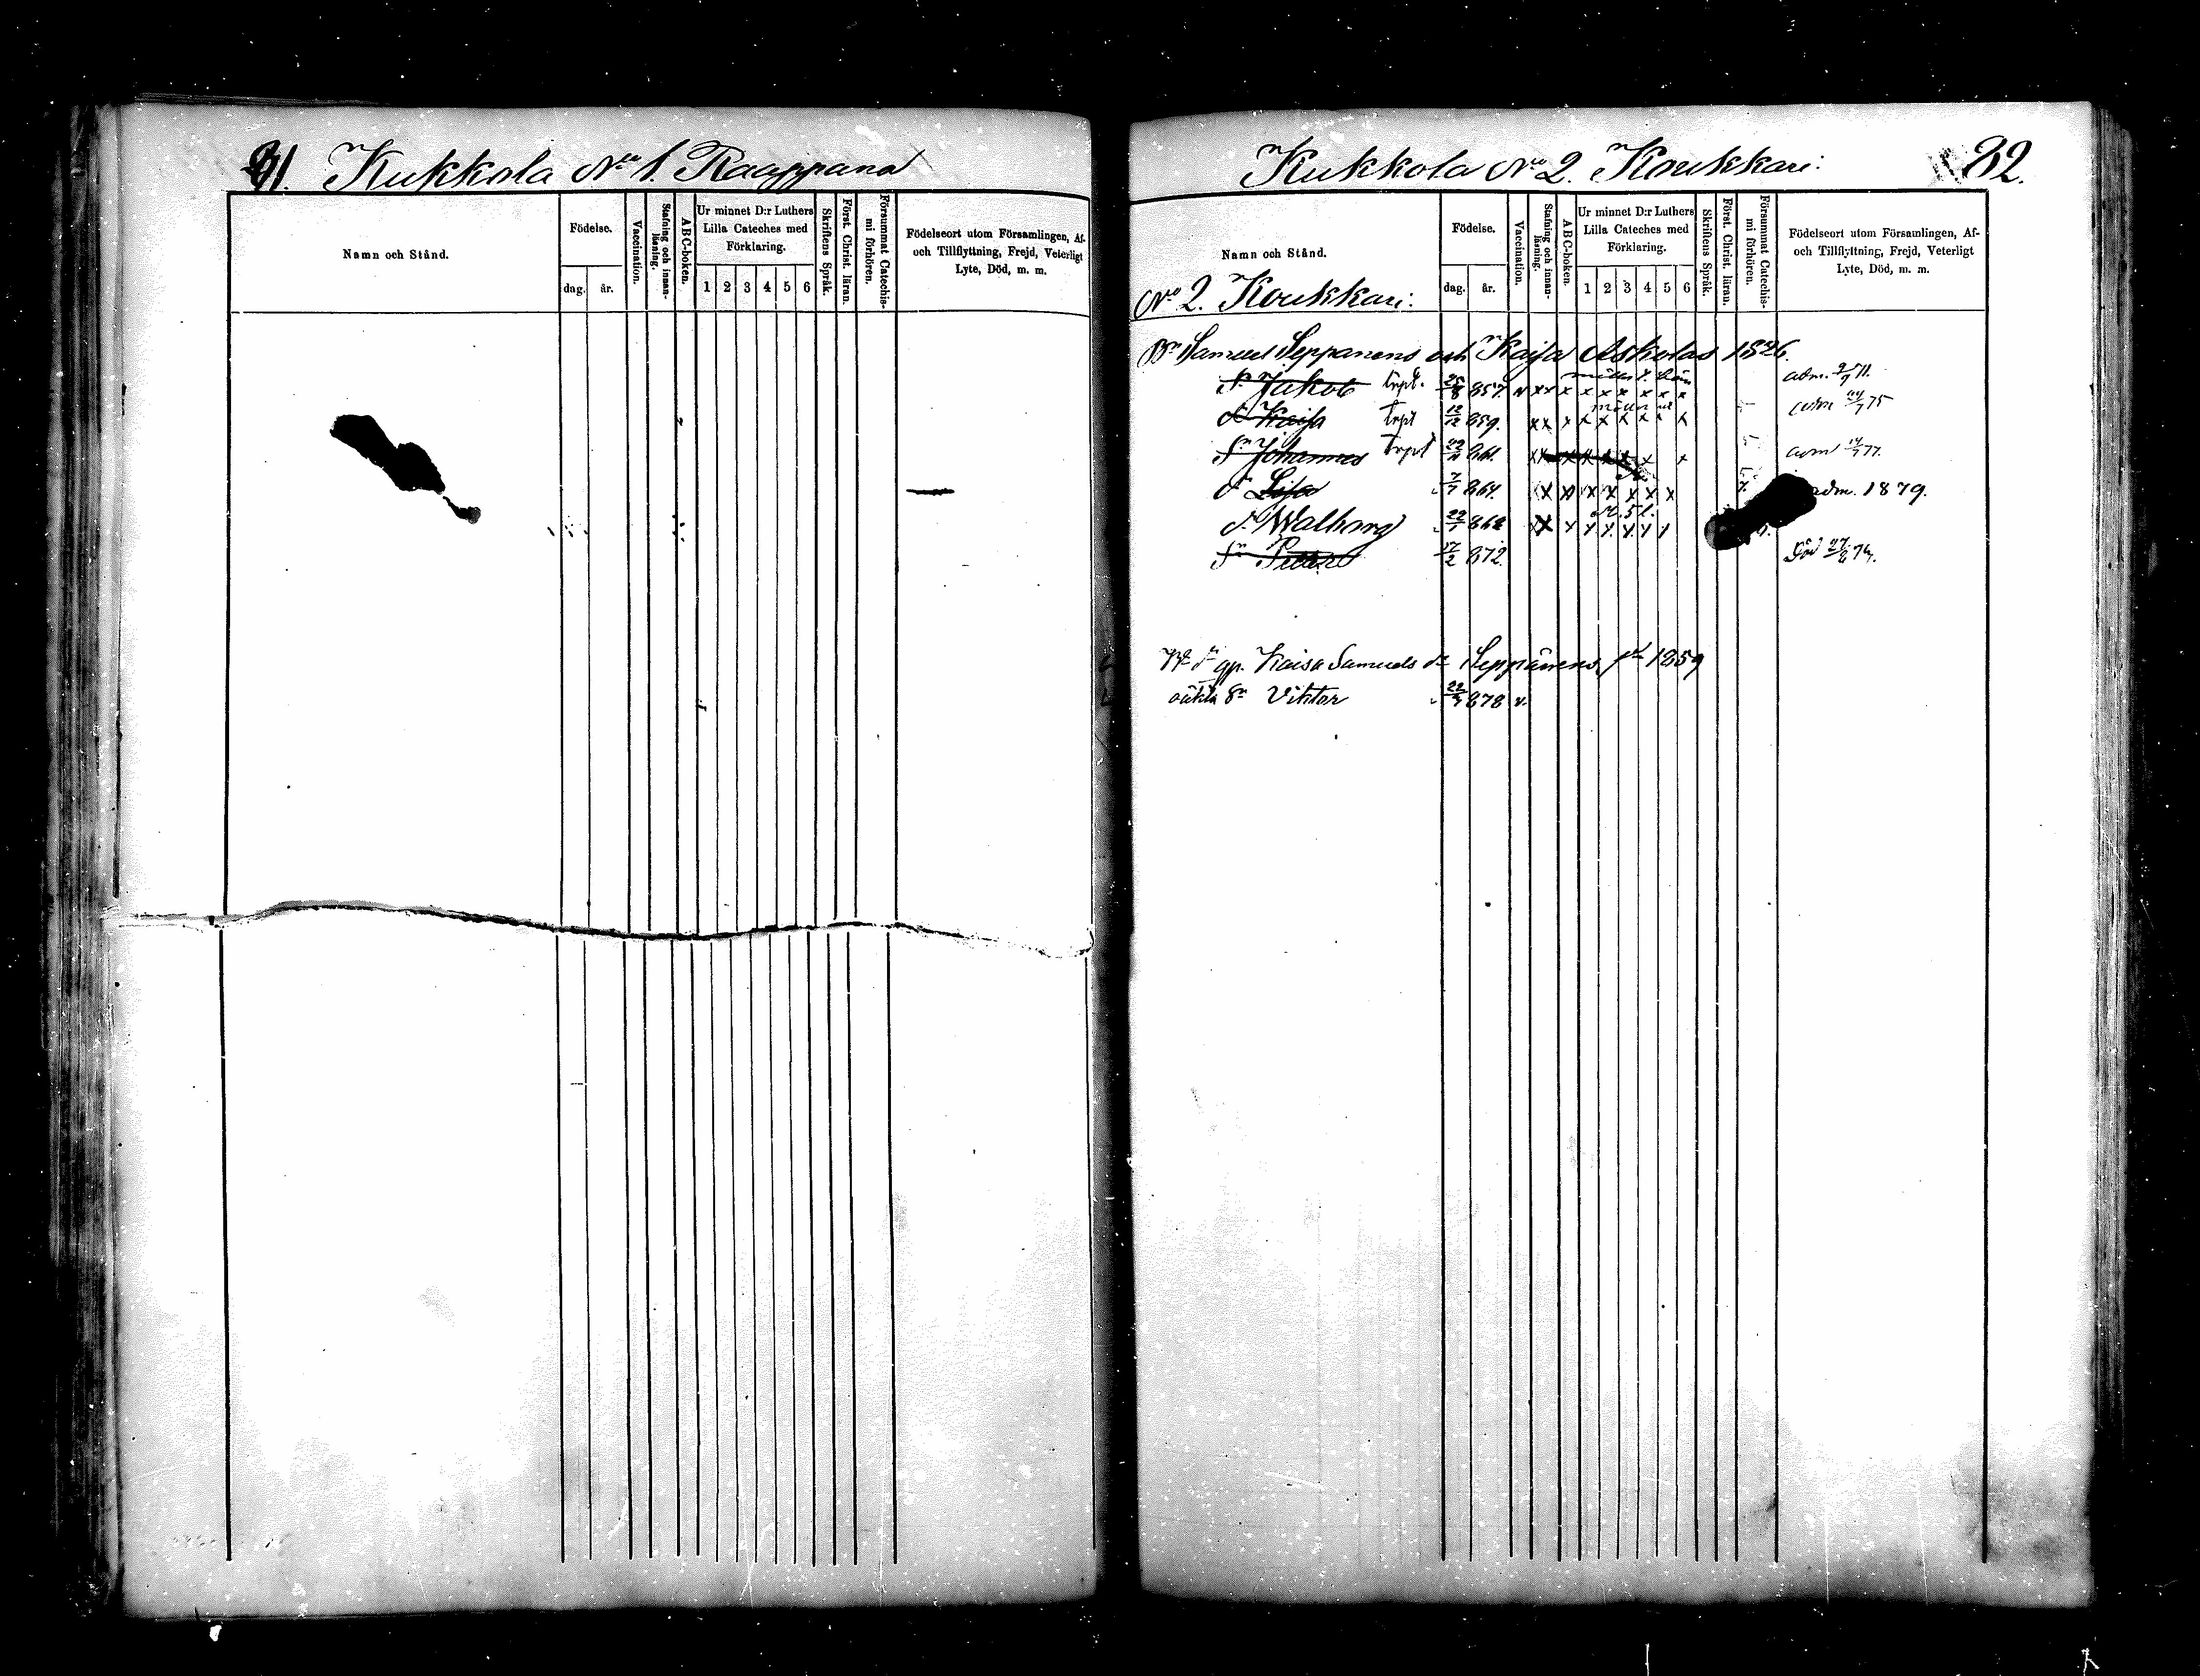 81. Kukkola No 1. Raappana
Namn och Stånd.
Födelse.
dag.
år.
Vaccination.
Stafning och innan-läsning.
ABC-boken.
Ur minnet D:r Luthers
Lilla Cateches med
Förklaring.
1 2 3 4 5 6
Skriftens Språk.
Först. Christ. läran.
Försummat Catechis-mi förhören.
Födelseort utom Församlingen, Af-
och Tillflyttning, Frejd, Veterligt
Lyte, Död, m. m.
Kukkola No 2. Koukkari: 82.
Namn och Stånd.
Födelse.
dag.
år.
Vaccination.
Stafning och innan-läsning.
ABC-boken.
Ur minnet D:r Luthers
Lilla Cateches med
Förklaring.
1 2 3 4 5 6
Skriftens Språk.
Först. Christ. läran.
Försummat Catechis-mi förhören.
Födelseort utom Församlingen, Af-
och Tillflyttning, Frejd, Veterligt
Lyte, Död, m. m.
No 2. Koukkari:
Bn Samuel Seppänens och Kaisa Askolas 1826.
Sn Jakob 857. x x x x x x x x x adm.
d. Kaisa 12/12 859. x x x x x x x x x 75
Sn Johannes 861. x x x x x x x x adm 77.
d. Lisa 7/7 864. x x x x x x x adm. 1879.
d. Walborg 868 x x x x x x
Sn Petter 17/2 872. Död
Kaisa Samuels dr Seppänens 1859
oäkta Sn Viktor 878 v.